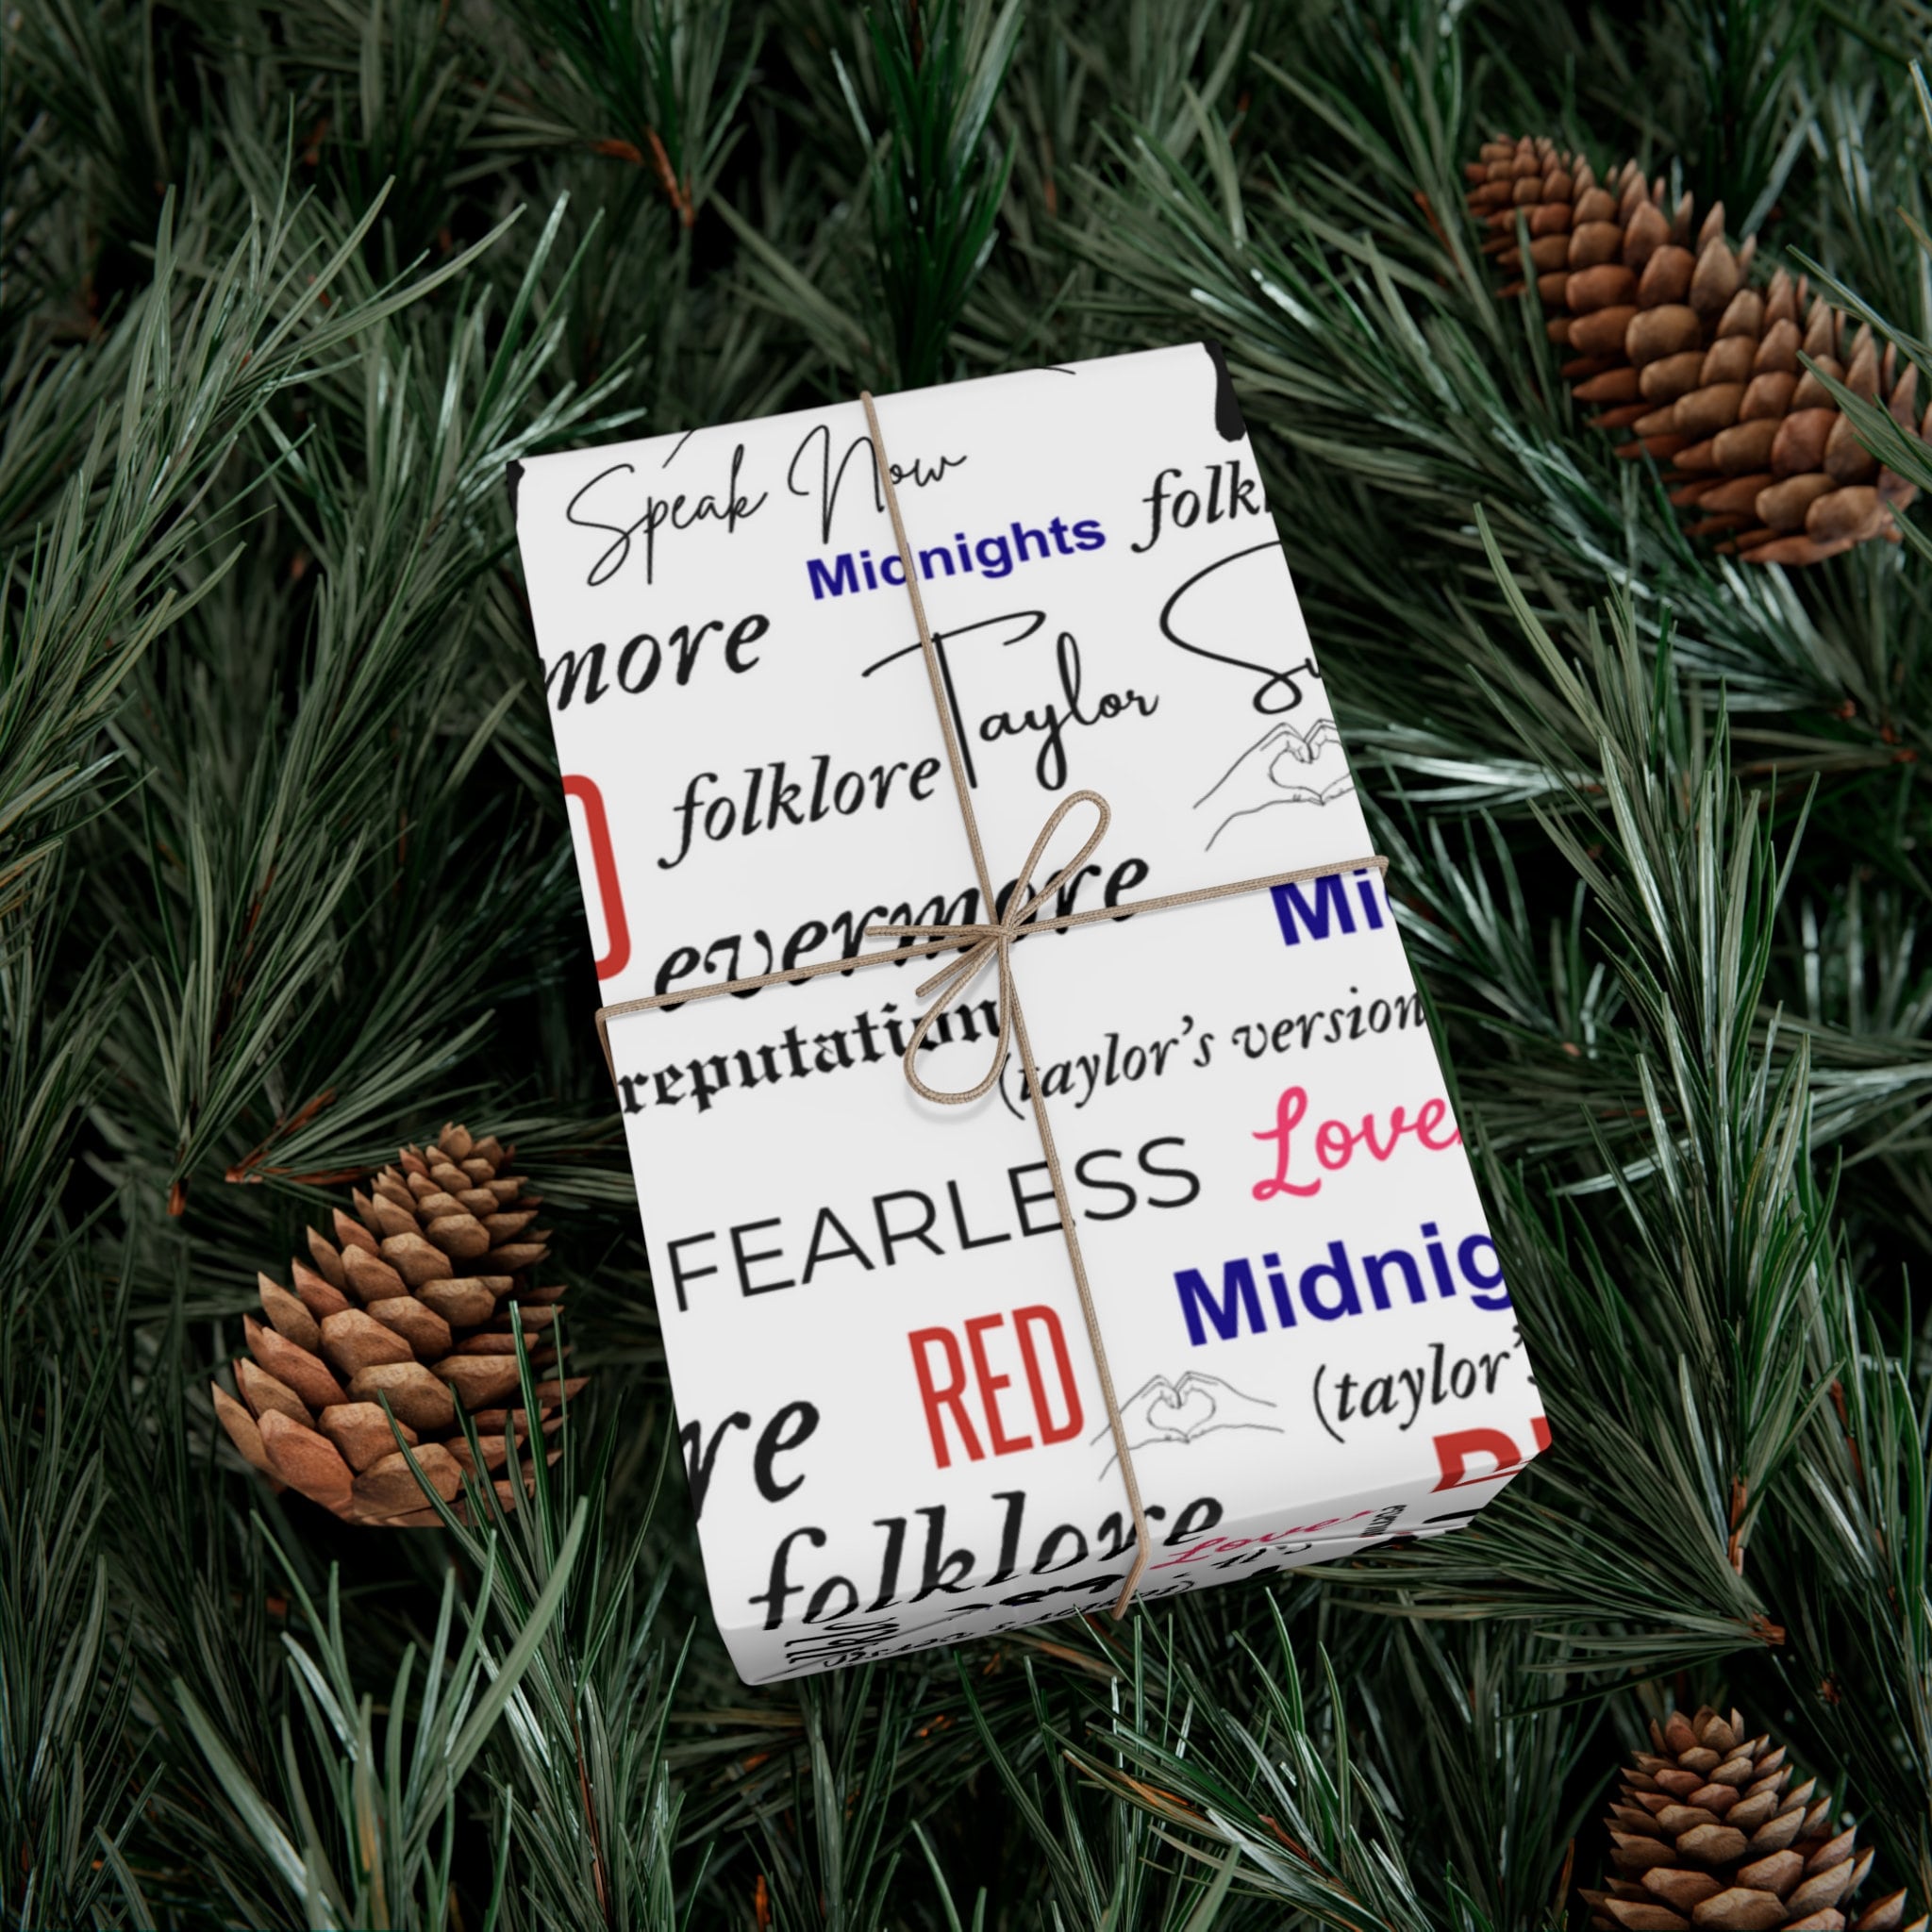 Speak Now
Midnights folk
more
Taylor S
folklore
evermore
Mi
reputation
(taylor's version
FEARLESS Lover
Midnig
RED
(taylor'
re
folklore
Lover